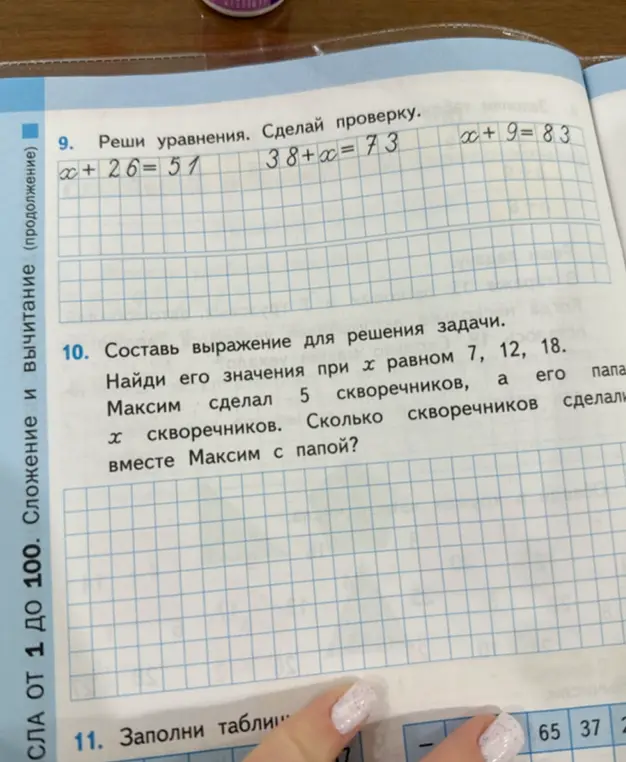 9. Реши уравнения. Сделай проверку.
x + 26 = 51 38 + x = 73 x + 9 = 83
10. Составь выражение для решения задачи.
Найди его значения при x равном 7, 12, 18.
Максим сделал 5 скворечников, а его папа
x скворечников. Сколько скворечников сделали
вместе Максим с папой?
11. Заполни
– 65 37
СЛА ОТ 1 ДО 100. Сложение и вычитание (продолжение)